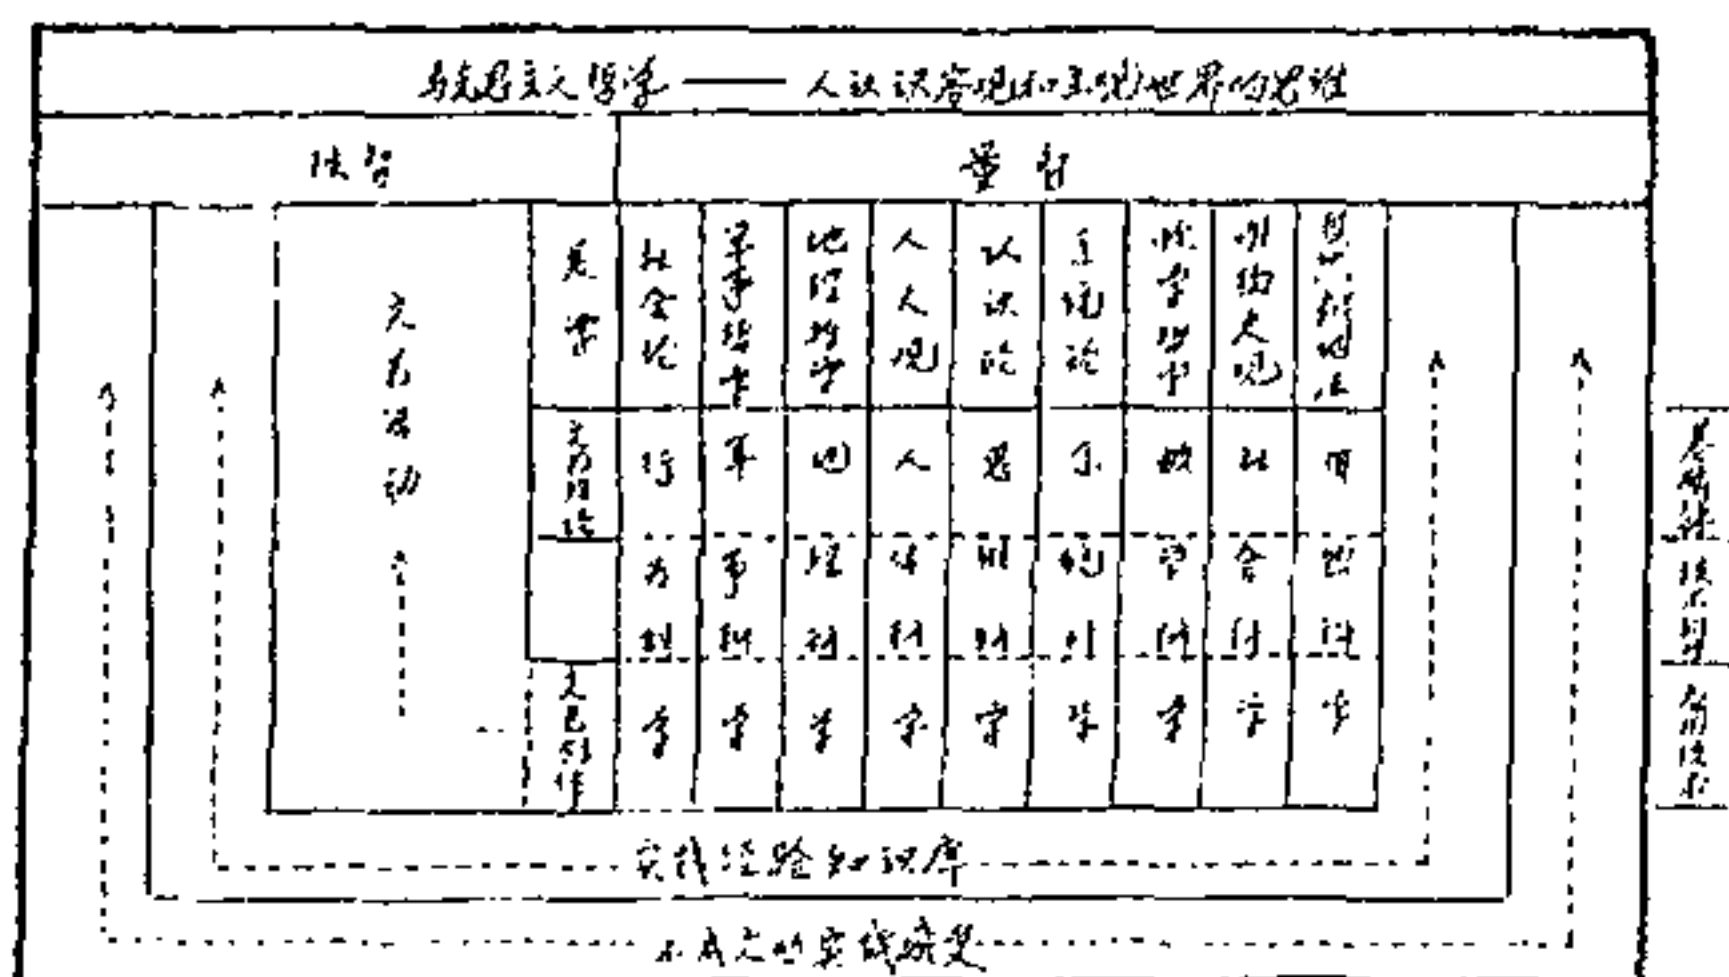 马克思主义哲学 —— 人认识客观和主观世界的思维
性智
量智
文艺活动
美学
社会论
军事哲学
地理哲学
人天观
认识论
系统论
数学哲学
唯物史观
自然辩证法
文艺理论
行为科学
军事科学
地理科学
人体科学
思维科学
系统科学
数学科学
社会科学
自然科学
文艺创作
基础科学
技术科学
应用技术
实践经验知识库
不成文的实践感受